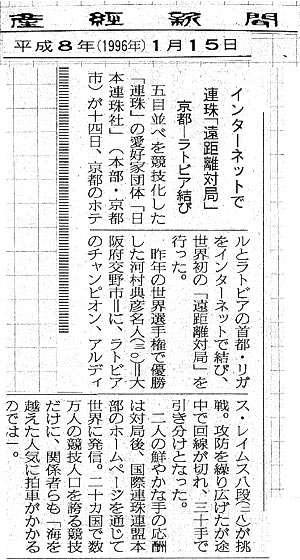 産經新聞
平成８年（1996年）１月１５日
インターネットで
連珠「遠距離対局」
京都ーラトビア結び
五目並べを競技化した
「連珠」の愛好家団体「日
本連珠社」（本部・京都
市）が十四日、京都のホテ
ルとラトビアの首都・リガ
をインターネットで結び、
世界初の「遠距離対局」を
行った。
昨年の世界選手権で優勝
した河村典彦名人（三〇）＝大
阪府交野市＝に、ラトビア
のチャンピオン、アルディ
ス・レイムス八段（二八）が挑
戦。攻防を繰り広げたが途
中で回線が切れ、三十手で
引き分けとなった。
二人の鮮やかな手の応酬
は対局後、国際連珠連盟本
部のホームページを通じて
世界に発信。二十カ国で数
万人の競技人口を誇る競技
だけに、関係者らも「海を
越えた人気に拍車がかかる
のでは」。